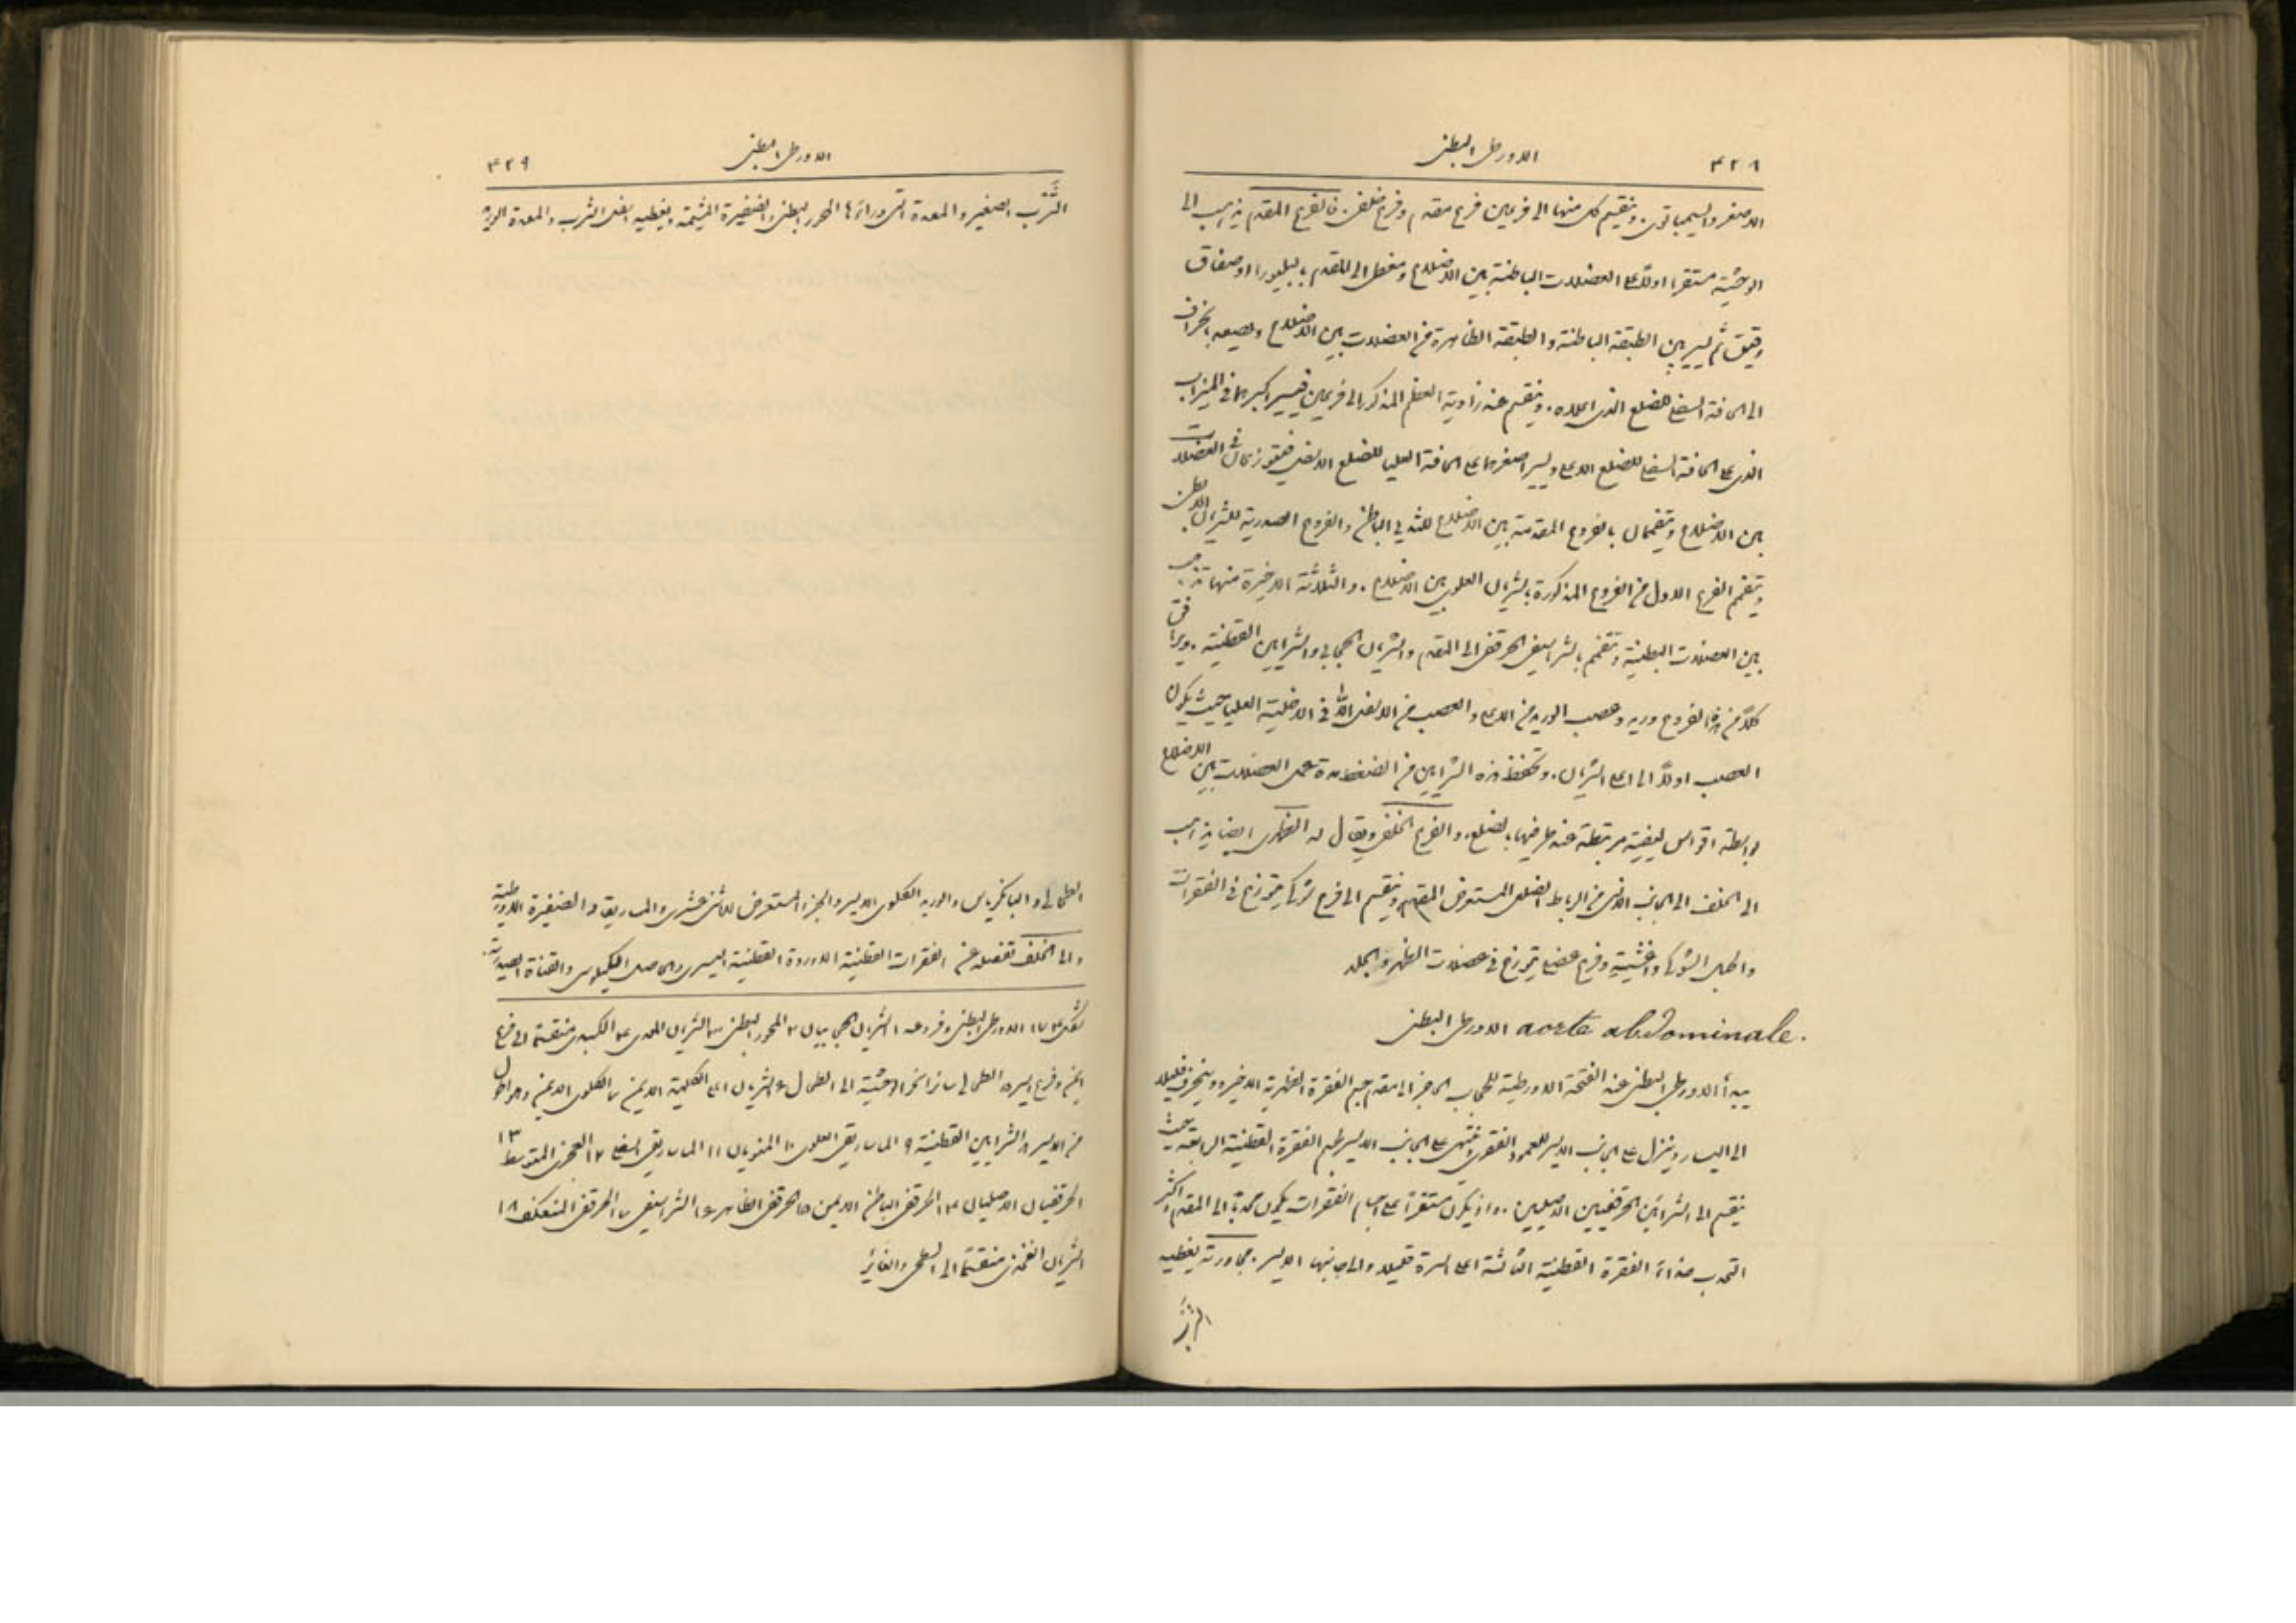 ٤٢٨ الاورطى البطنى
الاصغر والسيمباتوى. وينقسم كل منها الى فرعين فرع مقدم وفرع خلفى. فالفرع المقدم يذهب الى
الوحشية مستقرا اولا على العضلات الباطنة بين الاضلاع ومغطى الى المقدم بالبليورا او صفاق
رقيق ثم يسير بين الطبقة الباطنة والطبقة الظاهرة من العضلات بين الاضلاع ويصعد بانحراف
الى الحافة السفلى للضلع الذى اعلاه. وينقسم عند زاوية العظم المذكور الى فرعين فيسير اكبرهما فى الميزاب
الذى على الحافة السفلى للضلع الاعلى ويسير اصغرهما على الحافة العليا للضلع الاسفل فيتوزعان فى العضلات
بين الاضلاع ويتفممان بالفروع المقدمة بين الاضلاع للثديى الباطن والفروع الصدرية للشريان الابطى
ويتفمم الفرع الاول من الفروع المذكورة بالشريان العلوى بين الاضلاع. والثلاثة الاخيرة منها تذهب
بين العضلات البطنية وتتفمم بالشراسيفى الحرقفى الى المقدم والشريان الحجابى والشرايين القطنية. ويرافق
كلا من هذه الفروع وريد وعصب الوريد من الاعلى والعصب من الاسفل الا فى الاخلية العليا حيث يكون
العصب اولا الى اعلى الشريان. وتحفظ هذه الشرايين من الضغط مدة عمل العضلات بين الاضلاع
بواسطة اقواس ليفية مرتبطة عند طرفيها بالضلع. والفرع الخلفى ويقال له الظهرى ايضا يذهب
الى الخلف الى الجانب الانسى من الرباط الضلعى المستعرض المقدم وينقسم الى فرع شوكى يتوزع فى الفقرات
والحبل الشوكى واغشيته وفرع عضلى يتوزع فى عضلات الظهر والجلد
الاورطى البطنى aorte abdominale.
يبدأ الاورطى البطنى عند الفتحة الاورطية للحجاب الحاجز الى مقدم جسم الفقرة الظهرية الاخيرة وينحرف قليلا
الى اليسار وينزل على الجانب الايسر للعمود الفقرى وينتهى على الجانب الايسر لجسم الفقرة القطنية الرابعة حيث
ينقسم الى الشرائين الحرقفيين الاصليين. واذ يكون مستقرا على اجسام الفقرات يكون محدبا الى المقدم واكثر
التحدب حذاء الفقرة القطنية الثالثة اعلى السرة قليلا والى جانبها الايسر. مجاورته يغطيه
الثرب
٤٢٩ الاورطى البطنى
الثرب الصغير والمعدة التى وراءها المحور البطنى والضفيرة الحشمية ويغطيه اسفل الثرب والمعدة الوريد
الطحالى والبانكرياس والوريد الكلوى الايسر والجزء المستعرض للاثنى عشرى والماساريقا والضفيرة الاورطية
والى الخلف تفصله عن الفقرات القطنية الاوردة القطنية اليسرى والحاصل الكيلوسى والقناة الصدرية.
شكل ١٧٤ الاورطى البطنى وفروعه ١ الشريان الحجابيان ٢ المحور البطنى ٣ الشريان المعدى ٤ الكبدى منقسما الى فرع
ايمن وفرع ايسر ٥ الطحالى سائرا نحو الوحشية الى الطحال ٦ الشريان اعلى الكلية الايمن ٧ الكلوى الايمن وهو اطول
من الايسر ٨ الشرايين القطنية ٩ الماساريقى العلوى ١٠ المنويان ١١ الماساريقى السفلى ١٢ العجزى المتوسط ١٣
الحرقفيان الاصليان ١٤ الحرقفى الباطن الايمن ١٥ الحرقفى الظاهر ١٦ الشراسيفى ١٧ الحرقفى المنعكف ١٨
الشريان الفخذى منقسما الى السطحى والغائر